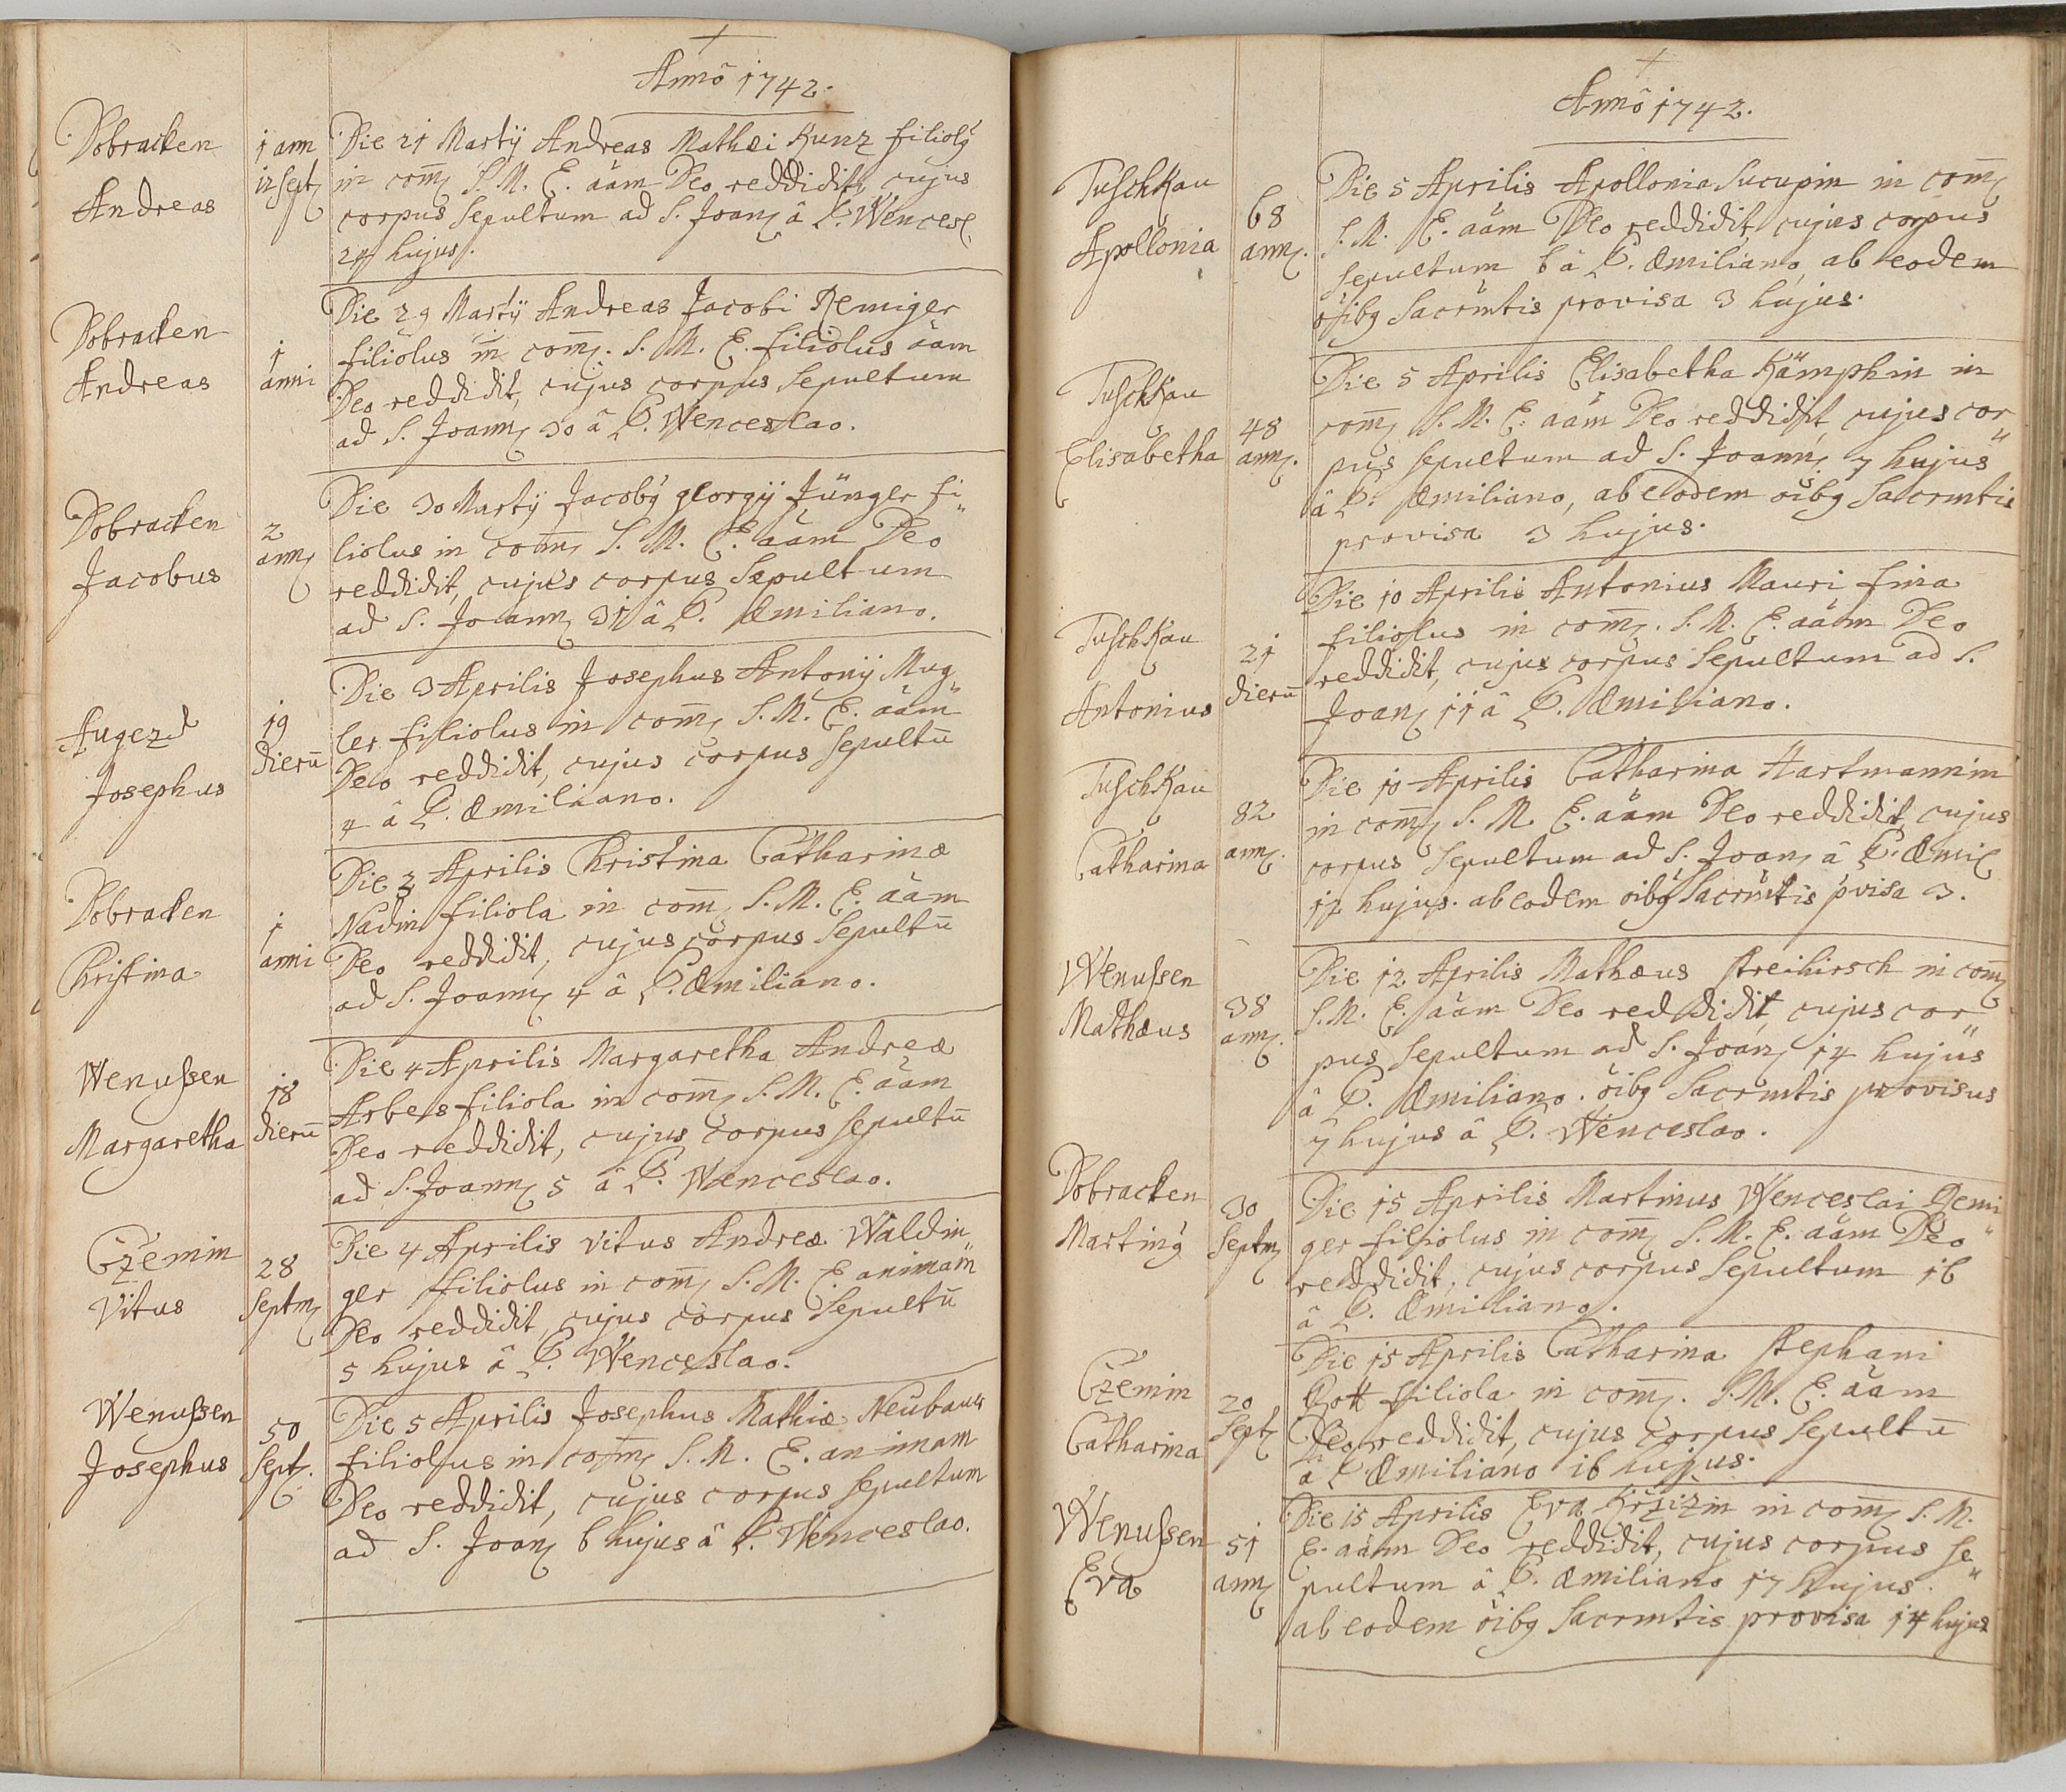 Annô 1742.
Dobracken
Andreas
1 ann
12 Sept
Die 21 Martÿ Andreas Mathæi Kunz filiolg
in com S. M. E. āam Deo reddidit, cujus
corpus Sepultum ad S. Joan â P. Wencesl
24 hujus.
Dobracken
Andreas
1
anni
Die 29 Martÿ Andreas Jacobi Remiger
filiolus in com. S. M. E. filiolus āam
Deo reddidit, cujus corpus Sepultum
ad S. Joann 30 â P. Wenceslao.
Dobracken
Jacobus
2
ann
Die 30 Martÿ Jacobg georgÿ Jünger fi„
liolus in com S. M. E. āam Deo
reddidit, cujus corpus Sepultum
ad S. Joann 31 â P. Æmiliano.
Augezd
Josephus
19
dierū
Die 3 Aprilis Josephus Antonÿ Mug„
ler filiolus in com S. M. E. āam
Deo reddidit, cujus corpus sepultū
4 â P. Æmiliano.
Dobracken
Christina
1
anni
Die 3 Aprilis Christina Catharinæ
Nadin filiola in com S. M. E. āam
Deo reddidit, cujus corpus Sepultū
ad S. Joann 4 â P. Æmiliano.
Wenußen
Margaretha
18
dierū
Die 4 Aprilis Margaretha Andreæ
Arbes filiola in com S. M. E. āam
Deo reddidit, cujus corpus sepultū
ad S. Joann 5 â P. Wenceslao.
Czemin
Vitus
28
Septm
Die 4 Aprilis Vitus Andreæ Waldin„
ger filiolus in com S. M. E. animam
Deo reddidit, cujus corpus Sepultū
5 hujus â P. Wenceslao.
Wenußen
Josephus
50
Sept.
Die 5 Aprilis Josephus Mathiæ Neubaur
filiolus in com S. M. E. animam
Deo reddidit, cujus corpus sepultum
ad S. Joan 6 hujus â P. Wenceslao.
Annô 1742.
Tuschkau
Apollonia
68
ann.
Die 5 Aprilis Apollonia Sucupin in com
S. M. E. āam Deo reddidit, cujus corpus
Sepultum 6 â P. Æmiliano, ab eodem
oibg Sacrmtis provisa 3 hujus.
Tuschkau
Elisabetha
48
ann.
Die 5 Aprilis Elisabetha Kämphin in
com S. M. E. āam Deo reddidit, cujus cor„
pus sepultum ad S. Joann. 7 hujus
â P. Æmiliano, ab eodem oibg Sacrmtis
provisa 3 hujus.
Tuschkau
Antonius
21
dierū
Die 10 Aprilis Antonius Mauri fina
filiolus in com. S. M. E. āam Deo
reddidit, cujus corpus Sepultum ad S.
Joan 11 â P. Æmiliano.
Tuschkau
Catharina
82
ann.
Die 10 Aprilis Catharina Hartmannin
in com S. M. E. āam Deo reddidit, cujus
corpus Sepultum ad S. Joan â P. Æmil
12 hujus. ab eodem oibg Sacrmtis pvisa 3.
Wenußen
Mathæus
38
ann.
Die 12 Aprilis Mathæus Streihirsch in com
S. M. E. āam Deo reddidit, cujus cor„
pus Sepultum ad S. Joan 14 hujus
â P. Æmiliano. oibg Sacrmtis provisus
7 hujus â P. Wenceslao.
Dobracken
Marting
30
Septm
Die 15 Aprilis Martinus Wenceslai Remi„
ger filiolus in com S. M. E. āam Deo
reddidit, cujus corpus Sepultum 16
â P. Æmiliano.
Czemin
Catharina
20
Sept
Die 15 Aprilis Catharina Stephani
Rott filiola in com. S. M. E. āam
Deo reddidit, cujus corpus Sepultū
â P. Æmiliano 16 hujus.
Wenußen
Eva
51
ann
Die 15 Aprilis Eva Krzizin in com S. M.
E. āam Deo reddidit, cujus corpus se„
pultum â P. Æmiliano 17 hujus.
ab eodem oibg Sacrmtis provisa 14 hujus